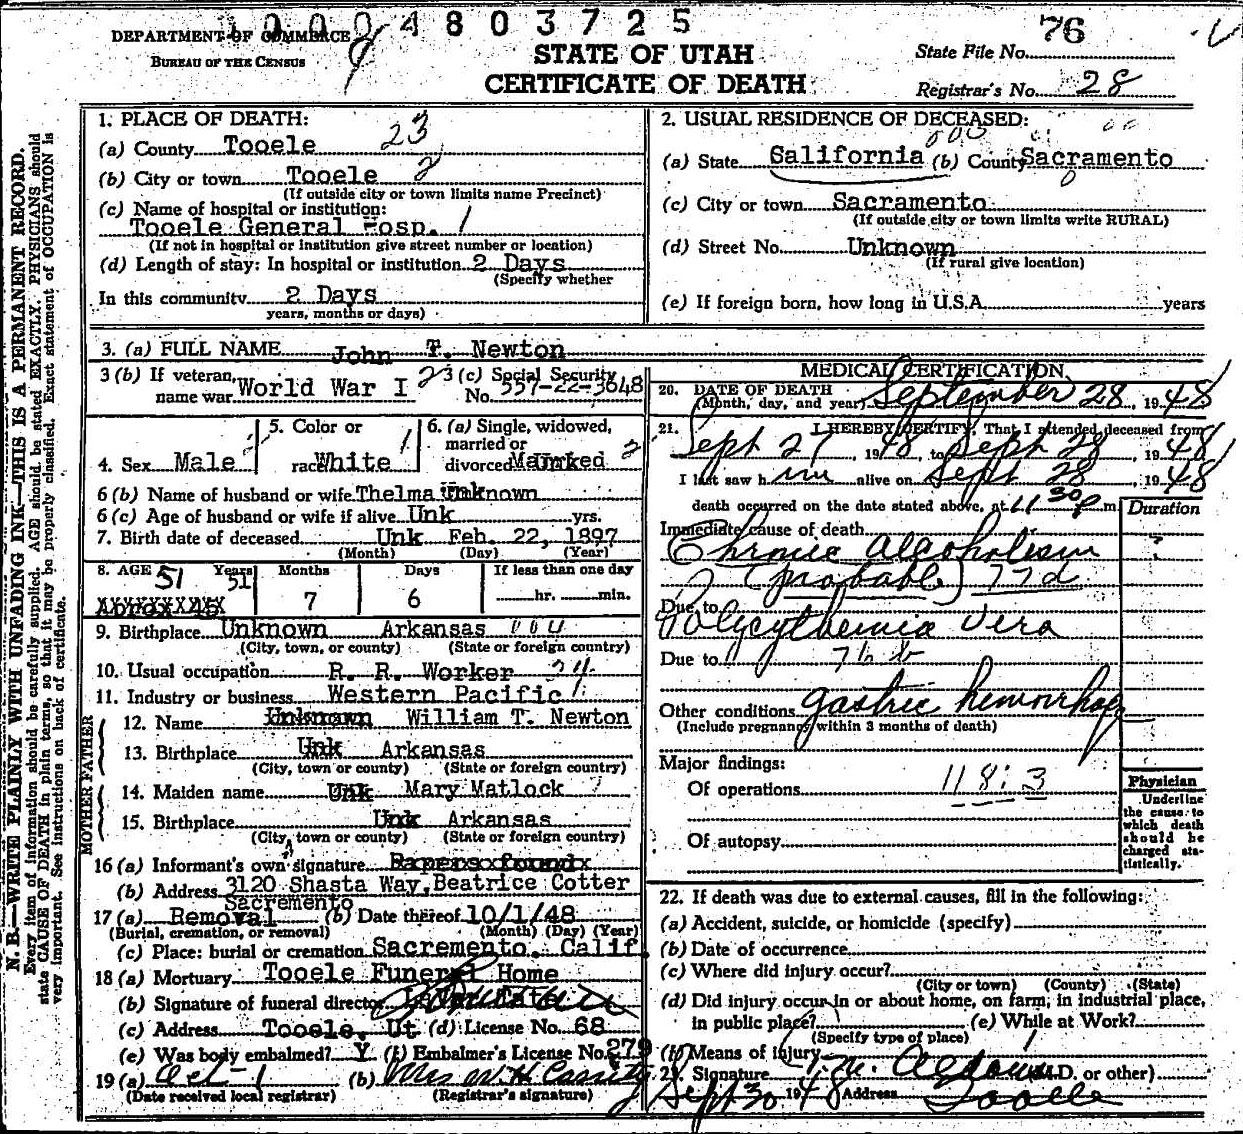 0004803725
DEPARTMENT OF COMMERCE
BUREAU OF THE CENSUS
STATE OF UTAH
CERTIFICATE OF DEATH
State File No. 76
Registrar's No. 28
N. B.—WRITE PLAINLY WITH UNFADING INK—THIS IS A PERMANENT RECORD.
Every item of information should be carefully supplied. AGE should be stated EXACTLY. PHYSICIANS should
state CAUSE OF DEATH in plain terms, so that it may be properly classified. Exact statement of OCCUPATION is
very important. See instructions on back of certificate.
1. PLACE OF DEATH: 23
(a) County Tooele
(b) City or town Tooele 2
(If outside city or town limits name Precinct)
(c) Name of hospital or institution:
Tooele General Hosp. 1
(If not in hospital or institution give street number or location)
(d) Length of stay: In hospital or institution 2 Days
(Specify whether
In this community 2 Days
years, months or days)
2. USUAL RESIDENCE OF DECEASED:
(a) State California (b) County Sacramento
(c) City or town Sacramento
(If outside city or town limits write RURAL)
(d) Street No. Unknown
(If rural give location)
(e) If foreign born, how long in U.S.A. years
3. (a) FULL NAME John T. Newton
3 (b) If veteran, name war World War I 3 (c) Social Security No. 557-22-3648
4. Sex Male 5. Color or race White 6. (a) Single, widowed, married or divorced Married
6 (b) Name of husband or wife Thelma Unknown
6 (c) Age of husband or wife if alive Unk yrs.
7. Birth date of deceased Unk Feb. 22, 1897
(Month) (Day) (Year)
8. AGE 51 Years 51 Months 7 Days 6 If less than one day hr. min.
Aprox 45
9. Birthplace Unknown Arkansas
(City, town, or county) (State or foreign country)
10. Usual occupation R. R. Worker
11. Industry or business Western Pacific
FATHER
12. Name Unknown William T. Newton
13. Birthplace Unk Arkansas
(City, town or county) (State or foreign country)
MOTHER
14. Maiden name Unk Mary Matlock
15. Birthplace Unk Arkansas
(City, town or county) (State or foreign country)
16 (a) Informant's own signature Papers found
(b) Address 3120 Shasta Way, Beatrice Cotter
Sacremento
17 (a) Removal (b) Date thereof 10/1/48
(Burial, cremation, or removal) (Month) (Day) (Year)
(c) Place: burial or cremation Sacremento. Calif.
18 (a) Mortuary Tooele Funeral Home
(b) Signature of funeral director
(c) Address Tooele, Ut (d) License No. 68
(e) Was body embalmed? Y (f) Embalmer's License No. 279
19 (a) Oct 1 (b) Mrs W. H. Cassity
(Date received local registrar) (Registrar's signature)
MEDICAL CERTIFICATION
20. DATE OF DEATH
(Month, day, and year) September 28, 1948
21. I HEREBY CERTIFY, That I attended deceased from
Sept 27, 1948, to Sept 28, 1948
I last saw him alive on Sept 28, 1948
death occurred on the date stated above, at 11 30 p m.
Duration
Immediate cause of death
Chronic alcoholism
(probable) 77d
Due to
Polycythemia Vera
Due to
Other conditions gastric hemorrhage
(Include pregnancy within 3 months of death)
Major findings:
Of operations 118:3
Of autopsy
Physician
Underline
the cause to
which death
should be
charged sta-
tistically.
22. If death was due to external causes, fill in the following:
(a) Accident, suicide, or homicide (specify)
(b) Date of occurrence
(c) Where did injury occur?
(City or town) (County) (State)
(d) Did injury occur in or about home, on farm, in industrial place,
in public place? (e) While at Work?
(Specify type of place)
(f) Means of injury
23. Signature (M.D. or other)
Sept 30 1948 Address Tooele